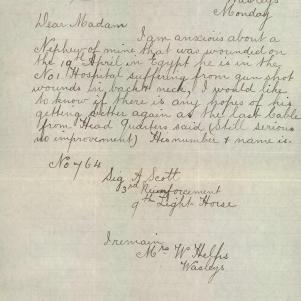 Wasleys
Monday
Dear Madam
I am anxious about a
Nephey of mine that was wounded on
the 19th April in Egypt he is in the
No 1 Hospital suffering from gun shot
wounds in back & neck, I would like
to know if there is any hopes of his
getting better again as the last Cable
from Head Quarters said (Still serious
no improvement) His number & name is.
No 764
Sig A Scott
13rd Reinforcement
9th Light Horse
I remain
Mrs W Helps
Wasleys